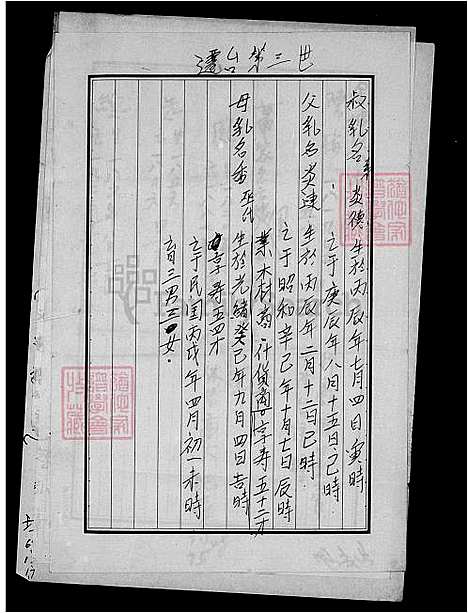 遷台第三世
叔乳名炎德生於丙辰年七月四日寅時
亡于庚辰年八月十五日己時
父乳名炎連生於丙辰年二月十二日巳時
亡于昭和辛巳年十月七日辰時
業木材商什貨商享寿五十二才
母乳名香 生於光緒癸巳年九月四日吉時
享寿五四才
亡于民国丙戌年四月初一未時
育三男三女